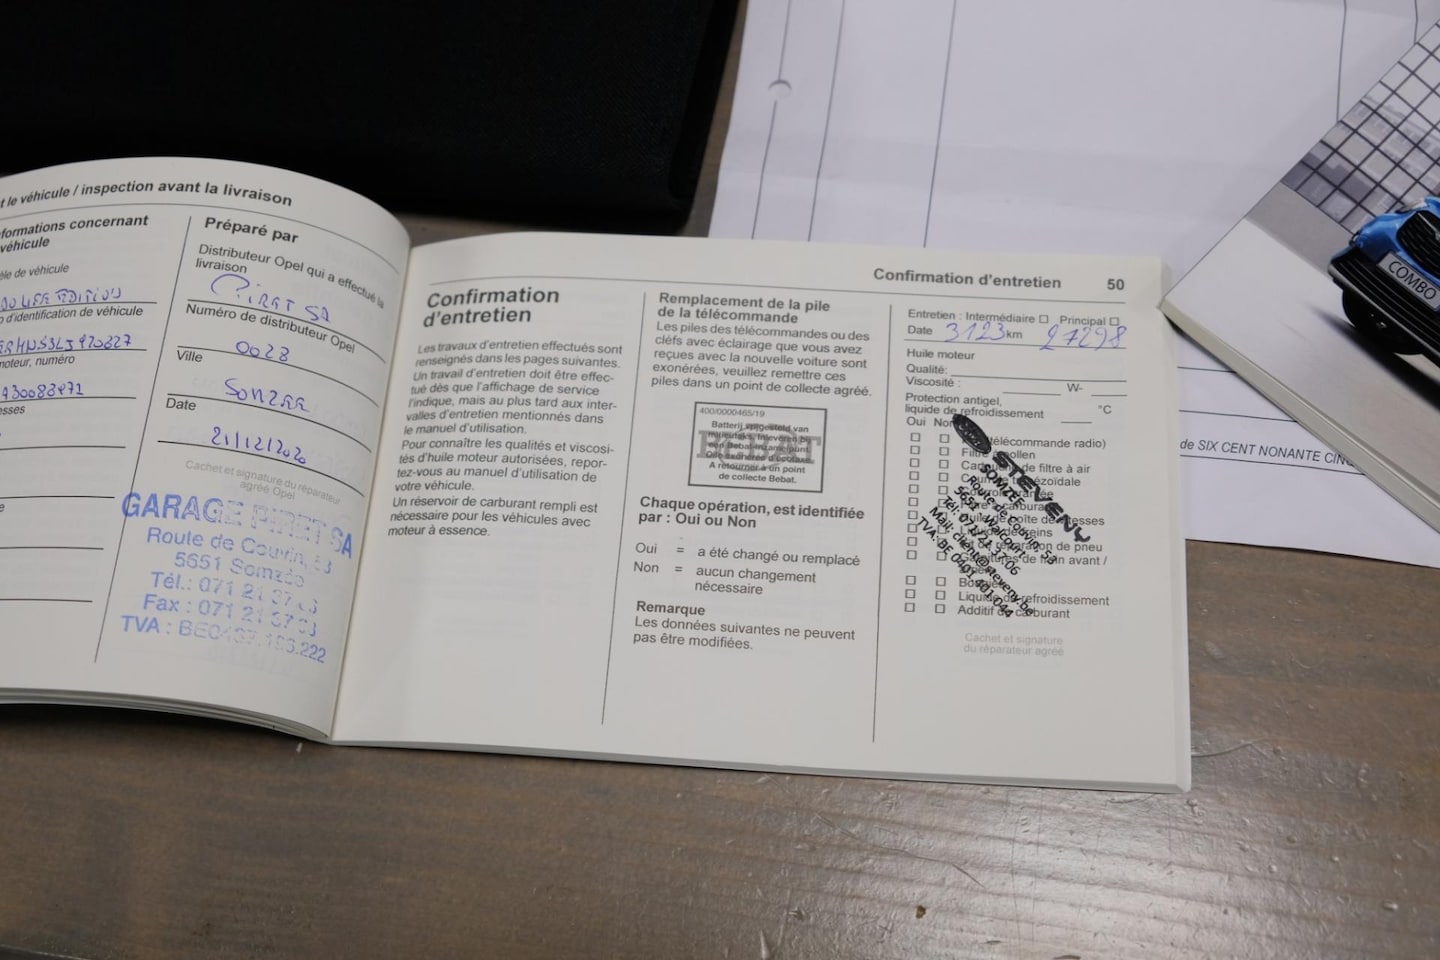 t le véhicule / inspection avant la livraison
formations concernant
véhicule
èle de véhicule
o d'identification de véhicule
moteur, numéro
esses
Préparé par
Distributeur Opel qui a effectué la
livraison
PIRET SA
Numéro de distributeur Opel
0028
Ville
SOMZEE
Date
21/12/2020
Cachet et signature du réparateur
agréé Opel
GARAGE PIRET SA
Route de Couvin, 53
5651 Somzée
Tél.: 071 21
Fax : 071 21
TVA :
Confirmation d'entretien 50
Confirmation
d'entretien
Les travaux d'entretien effectués sont
renseignés dans les pages suivantes.
Un travail d'entretien doit être effec-
tué dès que l'affichage de service
l'indique, mais au plus tard aux inter-
valles d'entretien mentionnés dans
le manuel d'utilisation.
Pour connaître les qualités et viscosi-
tés d'huile moteur autorisées, repor-
tez-vous au manuel d'utilisation de
votre véhicule.
Un réservoir de carburant rempli est
nécessaire pour les véhicules avec
moteur à essence.
Remplacement de la pile
de la télécommande
Les piles des télécommandes ou des
clefs avec éclairage que vous avez
reçues avec la nouvelle voiture sont
exonérées, veuillez remettre ces
piles dans un point de collecte agréé.
400/0000465/19
BEBAT
Batterij vrijgesteld van
milieutaks. Inleveren bij
een Bebat-inzamelpunt.
Pile exonérée d'écotaxe.
A retourner à un point
de collecte Bebat.
Chaque opération, est identifiée
par : Oui ou Non
Oui = a été changé ou remplacé
Non = aucun changement
nécessaire
Remarque
Les données suivantes ne peuvent
pas être modifiées.
Entretien : Intermédiaire ☐ Principal ☐
Date 3123 km 27298
Huile moteur
Qualité:
Viscosité : W-
Protection antigel,
liquide de refroidissement °C
Oui Non
télécommande radio)
Filtre à pollen
de filtre à air
Liquide de refroidissement
Additif de carburant
Cachet et signature
du réparateur agréé
STEVENY
SOMZEE
Route de Couvin, 53
5651 Walcourt
Mail: client@steveny.be
de SIX CENT NONANTE CINQ
COMBO